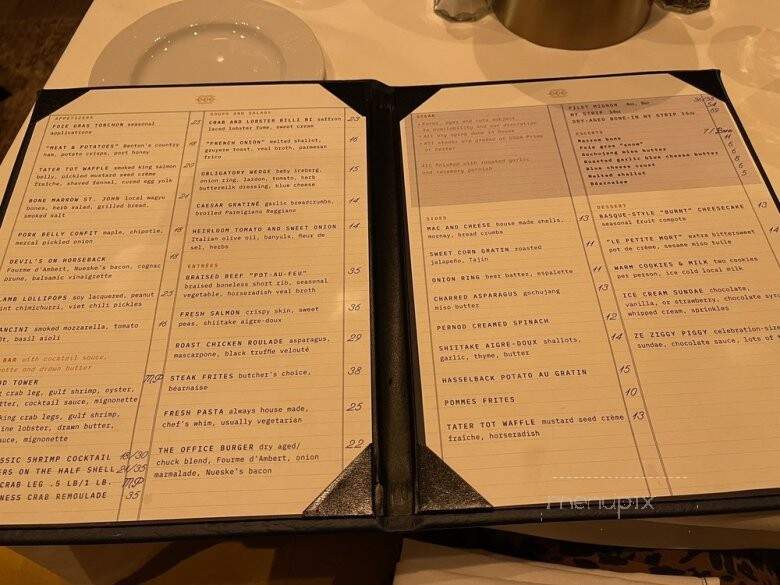 APPETIZERS
FOIE GRAS TORCHON seasonal 25
applications
"MEAT & POTATOES" Benton's country 18
ham, potato crisps, port honey
TATER TOT WAFFLE smoked king salmon 20
belly, pickled mustard seed crème
fraîche, shaved fennel, cured egg yolk
BONE MARROW ST. JOHN local wagyu 21
bones, herb salad, grilled bread,
smoked salt
PORK BELLY CONFIT maple, chipotle, 18
mezcal pickled onion
DEVIL'S ON HORSEBACK 18
Fourme d'Ambert, Nueske's bacon, cognac
prune, balsamic vinaigrette
LAMB LOLLIPOPS soy lacquered, peanut 25
mint chimichurri, viet chili pickles
ANCINI smoked mozzarella, tomato 16
basil aioli
BAR with cocktail sauce,
and drawn butter
TOWER MP
crab leg, gulf shrimp, oyster,
cocktail sauce, mignonette
king crab legs, gulf shrimp,
lobster, drawn butter,
mignonette
SSIC SHRIMP COCKTAIL 18/30
ERS ON THE HALF SHELL 21/35
CRAB LEG .5 LB/1 LB. MP
NESS CRAB REMOULADE 35
SOUPS AND SALADS
CRAB AND LOBSTER BILLI BI saffron 23
laced lobster fume, sweet cream
"FRENCH ONION" melted shallot, 16
gruyere toast, veal broth, parmesan
frico
OBLIGATORY WEDGE baby iceberg, 15
onion ring, lardon, tomato, herb
buttermilk dressing, blue cheese
CAESAR GRATINÉ garlic breadcrumbs, 14
broiled Parmigiano Reggiano
HEIRLOOM TOMATO AND SWEET ONION 14
Italian olive oil, banyuls, fleur de
sel, herbs
ENTREES
BRAISED BEEF "POT-AU-FEU" 35
braised boneless short rib, seasonal
vegetable, horseradish veal broth
FRESH SALMON crispy skin, sweet 36
peas, shiitake aigre-doux
ROAST CHICKEN ROULADE asparagus, 29
mascarpone, black truffle velouté
STEAK FRITES butcher's choice, 38
béarnaise
FRESH PASTA always house made, 25
chef's whim, usually vegetarian
THE OFFICE BURGER dry aged/ 22
chuck blend, Fourme d'Ambert, onion
marmalade, Nueske's bacon
STEAK
to availability and our discretion
dry aged in house
All steaks are graded at USDA Prime
or better
All finished with roasted garlic
and rosemary
FILET MIGNON
NY STRIP 54
DRY-AGED BONE-IN NY STRIP
ESCORTS
Marrow bone
Foie gras "snow"
Gochujang miso butter
Roasted garlic blue cheese butter
Blue cheese crust
Melted shallot
Béarnaise
SIDES
MAC AND CHEESE house made shells, 13
mornay, bread crumbs
SWEET CORN GRATIN roasted 11
jalapeño, Tajin
ONION RING beer batter, espelette 11
CHARRED ASPARAGUS gochujang 13
miso butter
PERNOD CREAMED SPINACH 12
SHIITAKE AIGRE-DOUX shallots, 14
garlic, thyme, butter
HASSELBACK POTATO AU GRATIN 15
POMMES FRITES 10
TATER TOT WAFFLE mustard seed crème 13
fraîche, horseradish
DESSERT
BASQUE-STYLE "BURNT" CHEESECAKE 13
seasonal fruit compote
"LE PETITE MORT" extra bittersweet 14
pot de crème, sesame miso tuile
WARM COOKIES & MILK two cookies
per person, ice cold local milk
ICE CREAM SUNDAE chocolate,
vanilla, or strawberry, chocolate sy
whipped cream, sprinkles
ZE ZIGGY PIGGY celebration-siz
sundae, chocolate sauce, lots of
menupix